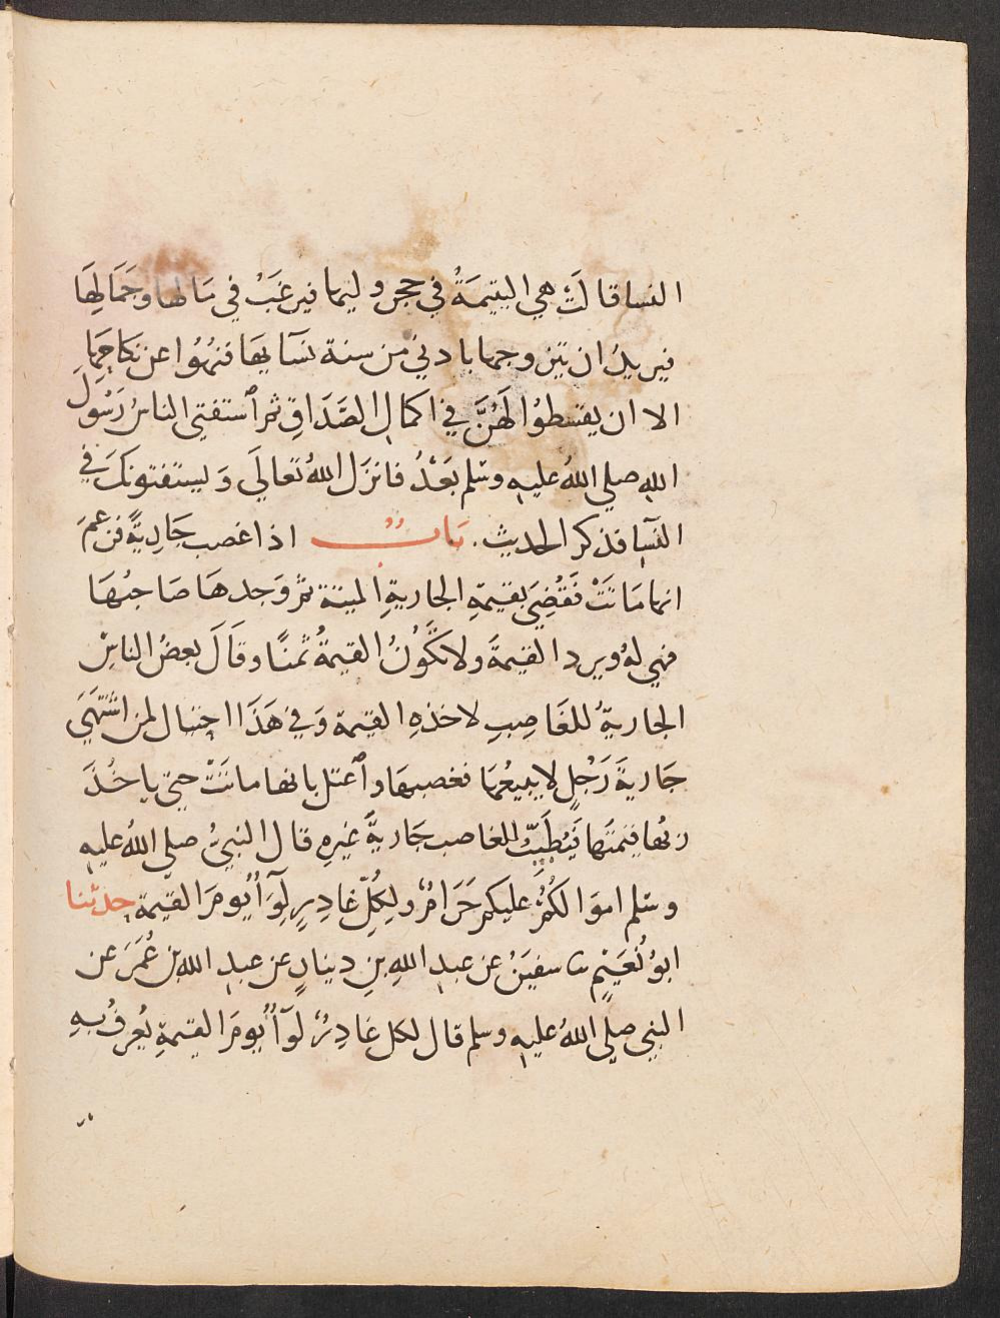 النسا قالَتْ هي اليتيمَةُ في حجر وليها فيرغَبُ في مَالها وجَمَالِهَا
فيريدُ ان يتزوجها بادني من سنة نسَآيهَا فنهُوا عن نكاحِهَا
الا ان يقسطوُا لَهُنَّ في اكمال الصَّدَاقِ ثم ٱستفتي الناسُ رَسُولَ
اللهِ صلي اللهُ عليه وسلم بَعْدُ فانزَل اللهُ تعالَي وَيستفتونكَ في
النسَآ فذكر الحديث. بَابٌ اذا غصب جَارِيةً فزعمَ
انها مَاتَتْ فَقُضِيَ بقيمةِ الجاريةِ الميتة ثم وَجدهَا صَاحبُهَا
فهي لهُ ويرد القيمةَ ولا تكُونُ القيمةُ ثمنًا وقَالَ بعضُ الناسِ
الجاريةُ للغَاصِبِ لاخذهِ القيمة وَفي هَذَا احتيال لمن اشْتَهَي
جَاريةَ رَجُلٍ لا يبيعُهَا فغصبهَا وٱعتل بانها ماتَتْ حتي ياخُذَ
ربُها قيمتَها فَيُطَيِّبُ للغاصب جَاريةَ غيرِهِ قال النبيُ صلي اللهُ عليه
وسلم اموَالكُمْ عليكم حَرَامٌ ولِكُلِّ غادِرٍ لِوَآءٌ يومَ القيمة حدثنا
ابوُ نُعَيْمٍ ثنا سفيَنُ عن عبدِ اللهِ بنِ دينارٍ عن عبدِ اللهِ بن عُمَرَ عن
النبي صلَّي اللهُ عليه وسلم قال لكل غادِرٍ لوآءٌ يومَ القيمةِ يُعرفُ بهِ